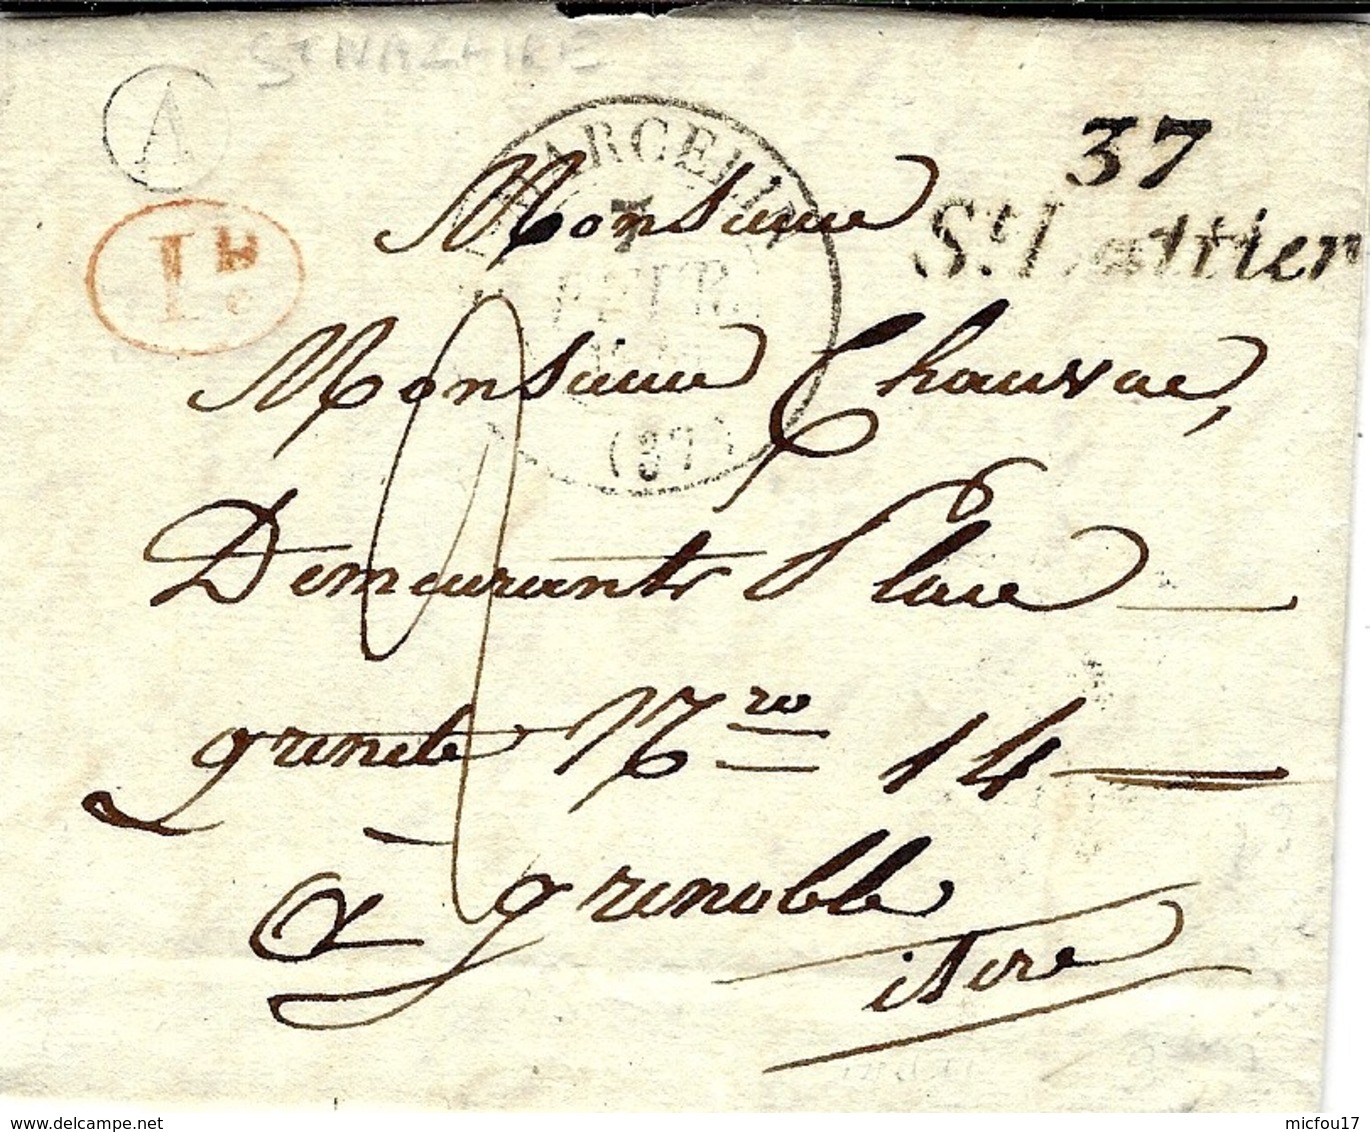 St NAZAIRE
A
1 D
c
37
St. Lattier
MARCELLIN
7
FEVR.
(37)
Monsieur
Monsieur Chauvac,
Demeurant Place
grenete Nro 14
à grenoble
isere
www.delcampe.net
micfou17